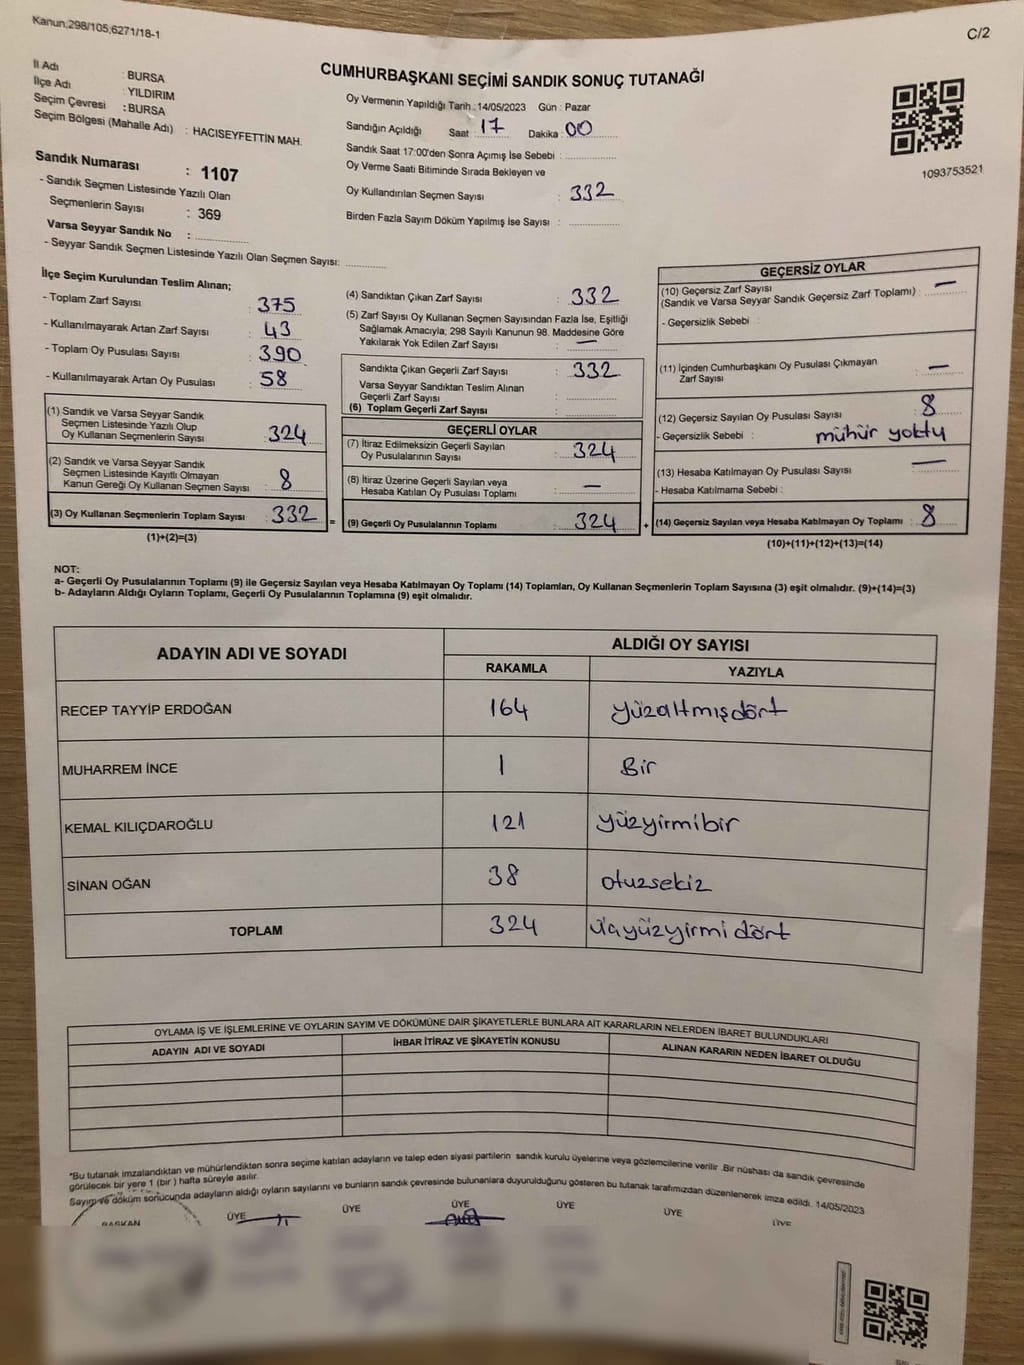 Kanun:298/105,6271/18-1
C/2
CUMHURBAŞKANI SEÇİMİ SANDIK SONUÇ TUTANAĞI
İl Adı : BURSA
İlçe Adı : YILDIRIM
Seçim Çevresi : BURSA
Seçim Bölgesi (Mahalle Adı) : HACISEYFETTİN MAH.
Sandık Numarası : 1107
- Sandık Seçmen Listesinde Yazılı Olan
Seçmenlerin Sayısı : 369
Varsa Seyyar Sandık No :
- Seyyar Sandık Seçmen Listesinde Yazılı Olan Seçmen Sayısı:
Oy Vermenin Yapıldığı Tarih : 14/05/2023 Gün : Pazar
Sandığın Açıldığı Saat : 17 Dakika : 00
Sandık Saat 17:00'den Sonra Açımış İse Sebebi :
Oy Verme Saati Bitiminde Sırada Bekleyen ve
Oy Kullandırılan Seçmen Sayısı : 332
Birden Fazla Sayım Döküm Yapılmış İse Sayısı :
1093753521
İlçe Seçim Kurulundan Teslim Alınan;
- Toplam Zarf Sayısı : 375
- Kullanılmayarak Artan Zarf Sayısı : 43
- Toplam Oy Pusulası Sayısı : 390
- Kullanılmayarak Artan Oy Pusulası : 58
(1) Sandık ve Varsa Seyyar Sandık
Seçmen Listesinde Yazılı Olup
Oy Kullanan Seçmenlerin Sayısı : 324
(2) Sandık ve Varsa Seyyar Sandık
Seçmen Listesinde Kayıtlı Olmayan
Kanun Gereği Oy Kullanan Seçmen Sayısı : 8
(3) Oy Kullanan Seçmenlerin Toplam Sayısı : 332 =
(1)+(2)=(3)
(4) Sandıktan Çıkan Zarf Sayısı : 332
(5) Zarf Sayısı Oy Kullanan Seçmen Sayısından Fazla İse, Eşitliği
Sağlamak Amacıyla; 298 Sayılı Kanunun 98. Maddesine Göre
Yakılarak Yok Edilen Zarf Sayısı : —
Sandıkta Çıkan Geçerli Zarf Sayısı : 332
Varsa Seyyar Sandıktan Teslim Alınan
Geçerli Zarf Sayısı :
(6) Toplam Geçerli Zarf Sayısı :
GEÇERLİ OYLAR
(7) İtiraz Edilmeksizin Geçerli Sayılan
Oy Pusulalarının Sayısı : 324
(8) İtiraz Üzerine Geçerli Sayılan veya
Hesaba Katılan Oy Pusulası Toplamı : —
(9) Geçerli Oy Pusulalarının Toplamı : 324 +
GEÇERSİZ OYLAR
(10) Geçersiz Zarf Sayısı —
(Sandık ve Varsa Seyyar Sandık Geçersiz Zarf Toplamı) :
- Geçersizlik Sebebi :
(11) İçinden Cumhurbaşkanı Oy Pusulası Çıkmayan
Zarf Sayısı : —
(12) Geçersiz Sayılan Oy Pusulası Sayısı : 8
- Geçersizlik Sebebi : mühür yoktu
(13) Hesaba Katılmayan Oy Pusulası Sayısı : —
- Hesaba Katılmama Sebebi :
(14) Geçersiz Sayılan veya Hesaba Katılmayan Oy Toplamı : 8
(10)+(11)+(12)+(13)=(14)
NOT:
a- Geçerli Oy Pusulalarının Toplamı (9) ile Geçersiz Sayılan veya Hesaba Katılmayan Oy Toplamı (14) Toplamları, Oy Kullanan Seçmenlerin Toplam Sayısına (3) eşit olmalıdır. (9)+(14)=(3)
b- Adayların Aldığı Oyların Toplamı, Geçerli Oy Pusulalarının Toplamına (9) eşit olmalıdır.
ADAYIN ADI VE SOYADI ALDIĞI OY SAYISI
RAKAMLA YAZIYLA
RECEP TAYYİP ERDOĞAN 164 yüzaltmışdört
MUHARREM İNCE 1 Bir
KEMAL KILIÇDAROĞLU 121 yüzyirmibir
SİNAN OĞAN 38 otuzsekiz
TOPLAM 324 üçyüzyirmi dört
OYLAMA İŞ VE İŞLEMLERİNE VE OYLARIN SAYIM VE DÖKÜMÜNE DAİR ŞİKAYETLERLE BUNLARA AİT KARARLARIN NELERDEN İBARET BULUNDUKLARI
ADAYIN ADI VE SOYADI İHBAR İTİRAZ VE ŞİKAYETİN KONUSU ALINAN KARARIN NEDEN İBARET OLDUĞU
*Bu tutanak imzalandıktan ve mühürlendikten sonra seçime katılan adayların ve talep eden siyasi partilerin sandık kurulu üyelerine veya gözlemcilerine verilir .Bir nüshası da sandık çevresinde
görülecek bir yere 1 (bir ) hafta süreyle asılır.
Sayım ve döküm sonucunda adayların aldığı oyların sayılarını ve bunların sandık çevresinde bulunanlara duyurulduğunu gösteren bu tutanak tarafımızdan düzenlenerek imza edildi. 14/05/2023
BAŞKAN ÜYE ÜYE ÜYE ÜYE ÜYE ÜYE